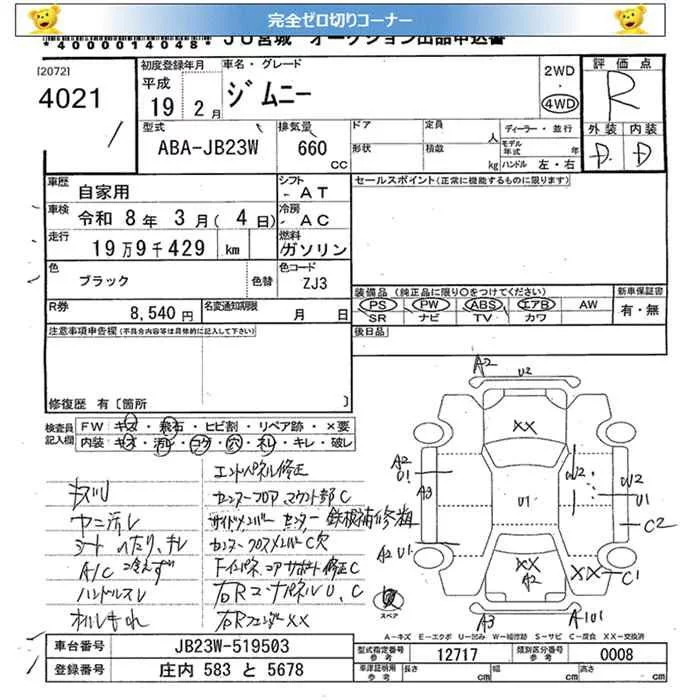 完全ゼロ切りコーナー
*4000014048* JU宮城 オークション出品申込書
[2072]
4021
初度登録年月
平成
19 2 月
車名・グレード
ジムニー
2WD
・
4WD
評価点
R
外装 内装
D D
型式
ABA-JB23W
排気量
660
CC
ドア
形状
定員
人
積載
kg
ディーラー・並行
モデル年式 年
ハンドル 左・右
車歴
自家用
シフト
AT
車検
令和 8年 3月( 4日)
冷房
AC
走行
19万9千429 km
燃料
ガソリン
色
ブラック
色替
色コード
ZJ3
R券
8,540円
名変通知期限
月 日
セールスポイント(正常に機能するものに限ります)
装備品(純正品に限り○をつけてください)
新車保証書
PS PW ABS エアB AW
SR ナビ TV カワ
有・無
後日品
注意事項申告欄(不具合内容等は具体的に記入して下さい)
修復歴 有〔箇所 〕
検査員記入欄
FW キズ・飛石・ヒビ割・リペア跡・×要
内装 キズ・汚レ・コゲ・穴・スレ・キレ・破レ
ヤニ汚レ
シート へたり、キレ
A/C 冷えず
ハンドルスレ
エンドパネル修正
センターフロアマウント部C
サイドメンバー センター 鉄板補修雑
センタークロスメンバーC穴
F インパネ、コアサポート修正C
右RコーナパネルU、C
右RフェンダーXX
A2
U2
XX
A2
U1
A3
U1
W2
W2
U1
C2
A2 U1
XX
A2
XX
C1
A3
A1U1
スペア
A-キズ E-エクボ U-凹み W-補修跡 S-サビ C-腐食 XX-交換済
車台番号
JB23W-519503
登録番号
庄内 583 と 5678
型式指定番号
参考
12717
類別区分番号
参考
0008
車庫証明用
参考
長さ
cm
幅
cm
高さ
cm